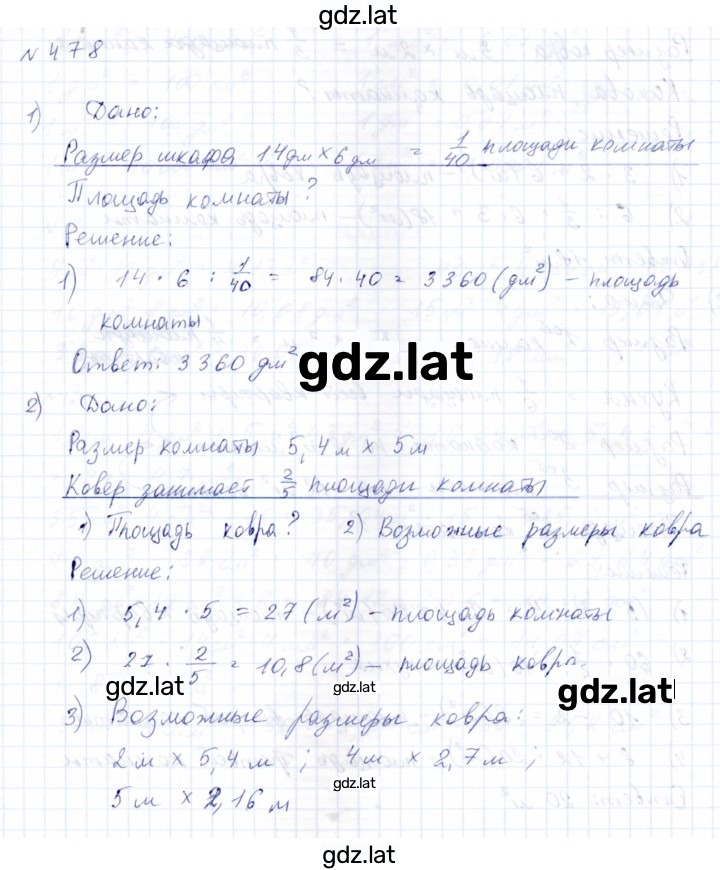 gdz.lat
№ 478
1) Дано:
Размер шкафа 14 дм × 6 дм = 1/40 площади комнаты
Площадь комнаты?
Решение:
1) 14 · 6 : 1/40 = 84 · 40 = 3360 (дм²) – площадь
комнаты
Ответ: 3360 дм²
gdz.lat
2) Дано:
Размер комнаты 5,4 м × 5 м
Ковер занимает 2/5 площади комнаты
1) Площадь ковра? 2) Возможные размеры ковра
Решение:
1) 5,4 · 5 = 27 (м²) – площадь комнаты
2) 27 · 2/5 = 10,8 (м²) – площадь ковра.
gdz.lat gdz.lat gdz.lat
3) Возможные размеры ковра:
2 м × 5,4 м; 4 м × 2,7 м;
gdz.lat
5 м × 2,16 м
gdz.lat